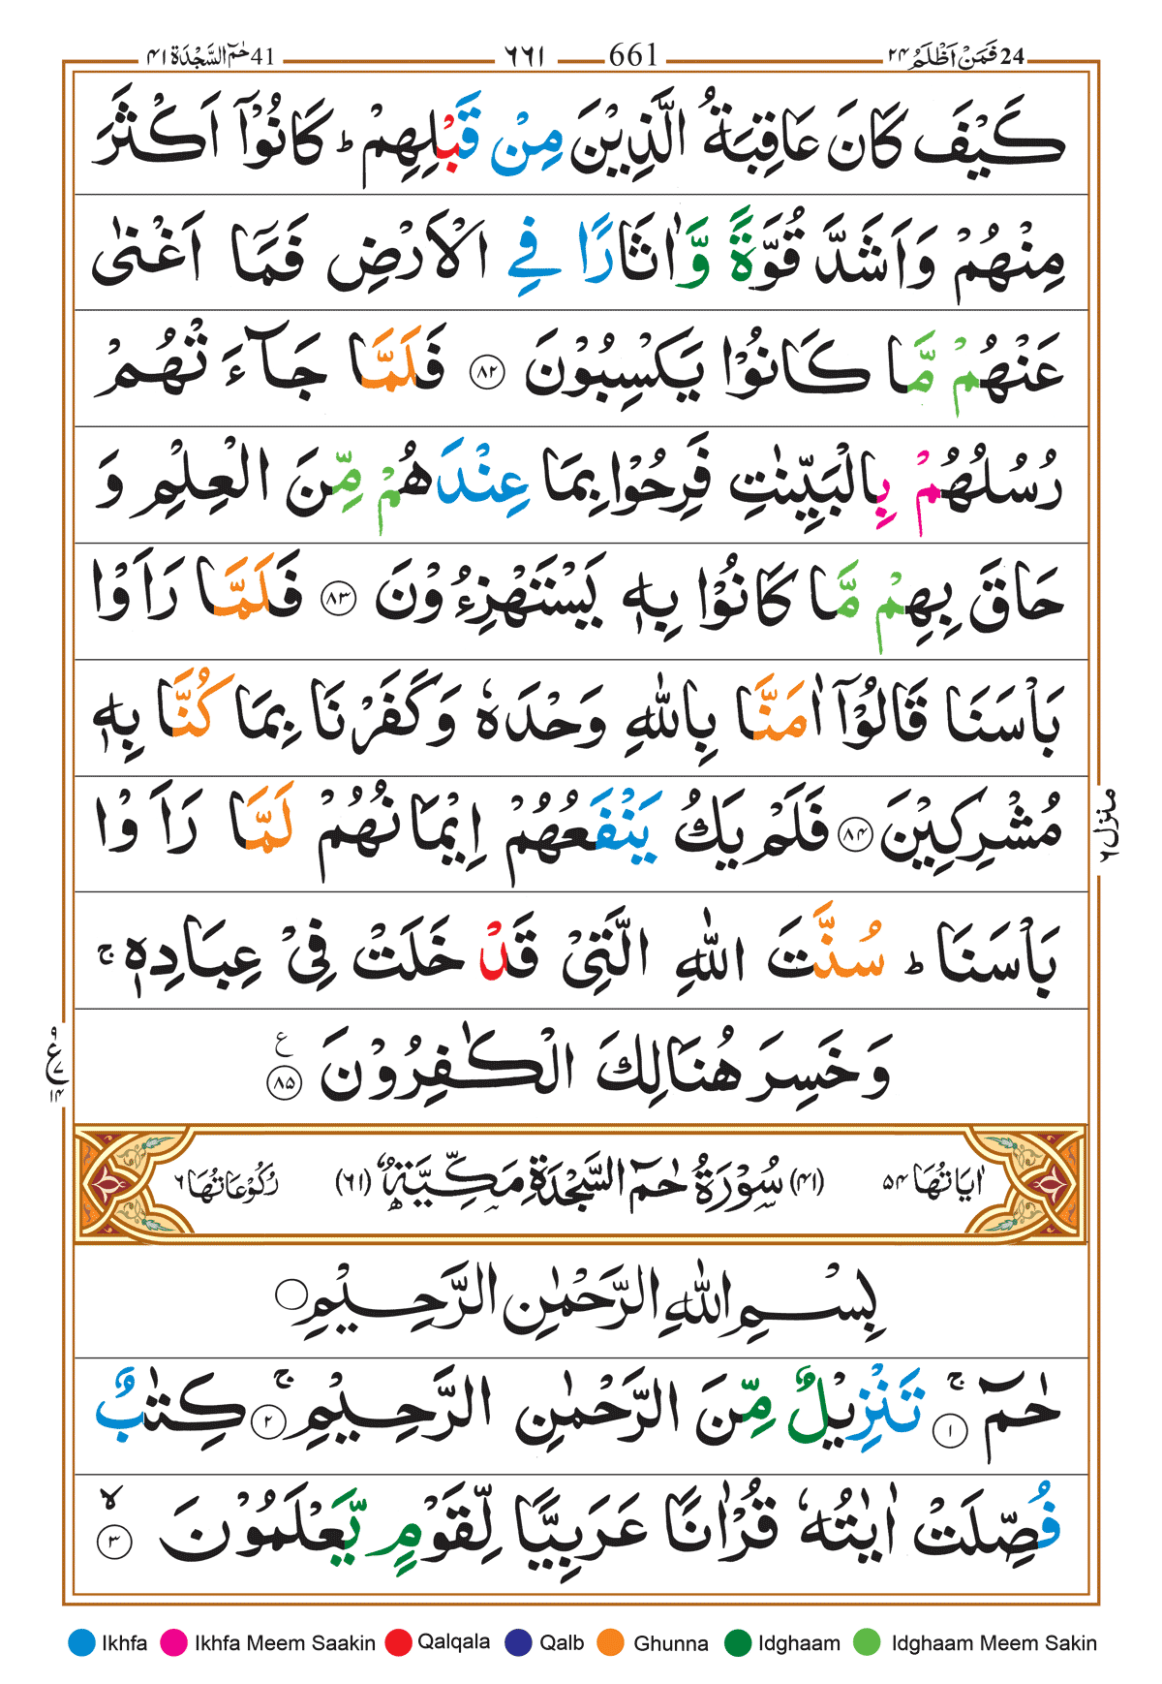 24 فَمَنْ اَظْلَمُ ٢٤ 661 ٦٦١ 41 حٰمٓ السَّجْدَة ٤١
كَيْفَ كَانَ عَاقِبَةُ الَّذِيْنَ مِنْ قَبْلِهِمْ ؕ كَانُوْۤا اَكْثَرَ
مِنْهُمْ وَاَشَدَّ قُوَّةً وَّاٰثَارًا فِي الْاَرْضِ فَمَاۤ اَغْنٰى
عَنْهُمْ مَّا كَانُوْا يَكْسِبُوْنَ ٨٢ فَلَمَّا جَآءَ تْهُمْ
رُسُلُهُمْ بِالْبَيِّنٰتِ فَرِحُوْا بِمَا عِنْدَهُمْ مِّنَ الْعِلْمِ وَ
حَاقَ بِهِمْ مَّا كَانُوْا بِهٖ يَسْتَهْزِءُوْنَ ٨٣ فَلَمَّا رَاَوْا
بَاْسَنَا قَالُوْۤا اٰمَنَّا بِاللّٰهِ وَحْدَهٗ وَكَفَرْنَا بِمَا كُنَّا بِهٖ
مُشْرِكِيْنَ ٨٤ فَلَمْ يَكُ يَنْفَعُهُمْ اِيْمَانُهُمْ لَمَّا رَاَ وْا
بَاْسَنَا ؕ سُنَّتَ اللّٰهِ الَّتِيْ قَدْ خَلَتْ فِيْ عِبَادِهٖ ۚ
وَخَسِرَ هُنَالِكَ الْكٰفِرُوْنَ ٨٥ ع
منزل ٦
اٰيَاتُهَا ٥٤ (٤١) سُوْرَةُ حٰمٓ السَّجْدَةِ مَكِّيَّةٌ (٦١) رُكُوْعَاتُهَا ٦
بِسْمِ اللّٰهِ الرَّحْمٰنِ الرَّحِيْمِ
حٰمٓ ۚ ١ تَنْزِيْلٌ مِّنَ الرَّحْمٰنِ الرَّحِيْمِ ۚ ٢ كِتٰبٌ
فُصِّلَتْ اٰيٰتُهٗ قُرْاٰنًا عَرَبِيًّا لِّقَوْمٍ يَّعْلَمُوْنَ ۙ ٣
Ikhfa Ikhfa Meem Saakin Qalqala Qalb Ghunna Idghaam Idghaam Meem Sakin